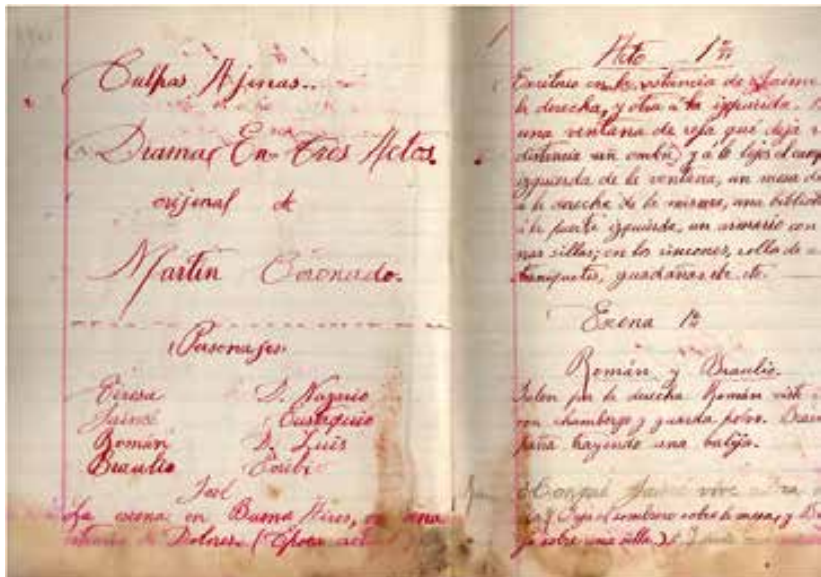 Culpas Ajenas..
Drama En Tres Actos.
orijinal de
Martín Coronado.
Personajes
Teresa D. Nazario
Jaime Eustaquio
Román D. Luis
Braulio Toribio
José
La exena en Buenos Aires, en una
estancia de Dolores. (Época actual
Acto 1º
Escritorio en la estancia de Jaime
la derecha, y otra á la izquierda.
una ventana de reja que deja
distancia un ombú, y á lo lejos el camp
izquierda de la ventana, un mesa de
a la derecha de la misma, una bibliot
á la puerta izquierda, un armario con
nas sillas; en los rincones, rollo de a
banquetes, guadañas etc. etc.
Exena 1ª
Román y Braulio.
Salen por la derecha. Román viste
con chambergo y guarda polvo. Brau
paña trayendo una balija.
Conqué Jaime vive
Deja el sombrero sobre la mesa, y B
ja sobre una silla.